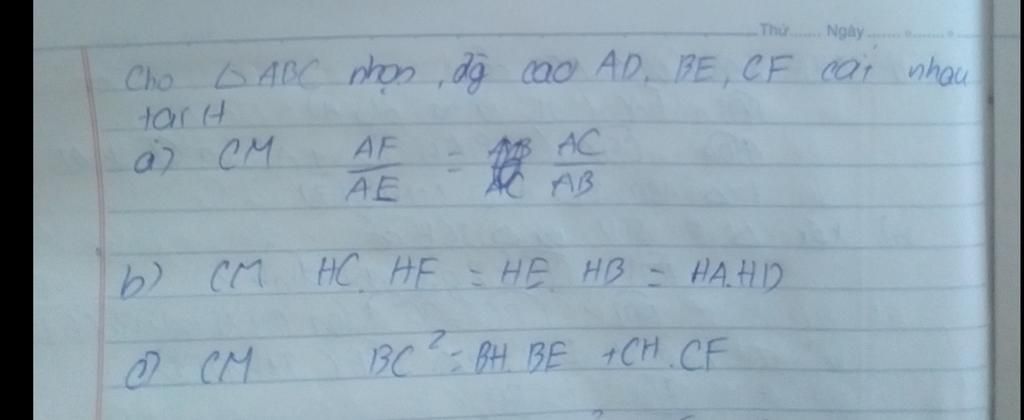 Thứ...... Ngày...........
Cho △ABC nhọn, đg cao AD, BE, CF cắt nhau
tại H
a) CM AF/AE = AC/AB
b) CM HC. HF = HE. HB = HA.HD
c) CM BC² = BH.BE + CH.CF